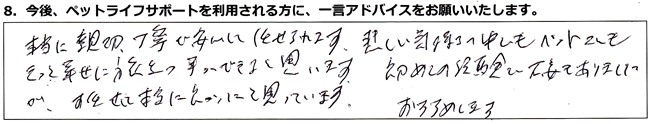 8. 今後、ペットライフサポートを利用される方に、一言アドバイスをお願いいたします。
本当に親切、丁寧で安心して任せられます。悲しい気持の中でもペットにとっても
きっと幸せに旅立つ事ができると思います。初めての経験で不安でありました
が、お任せして本当に良かったと思っています。おすすめします